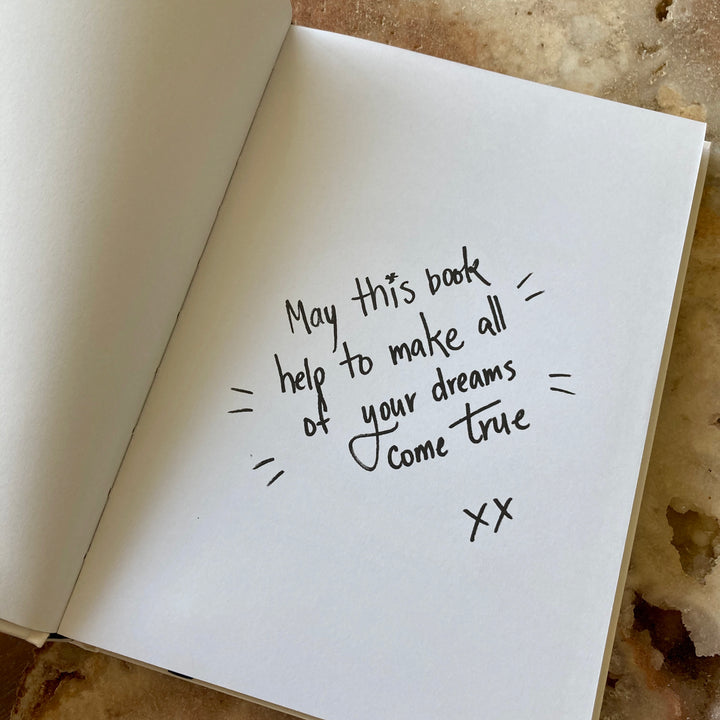 May this book
help to make all
of your dreams
come true
xx